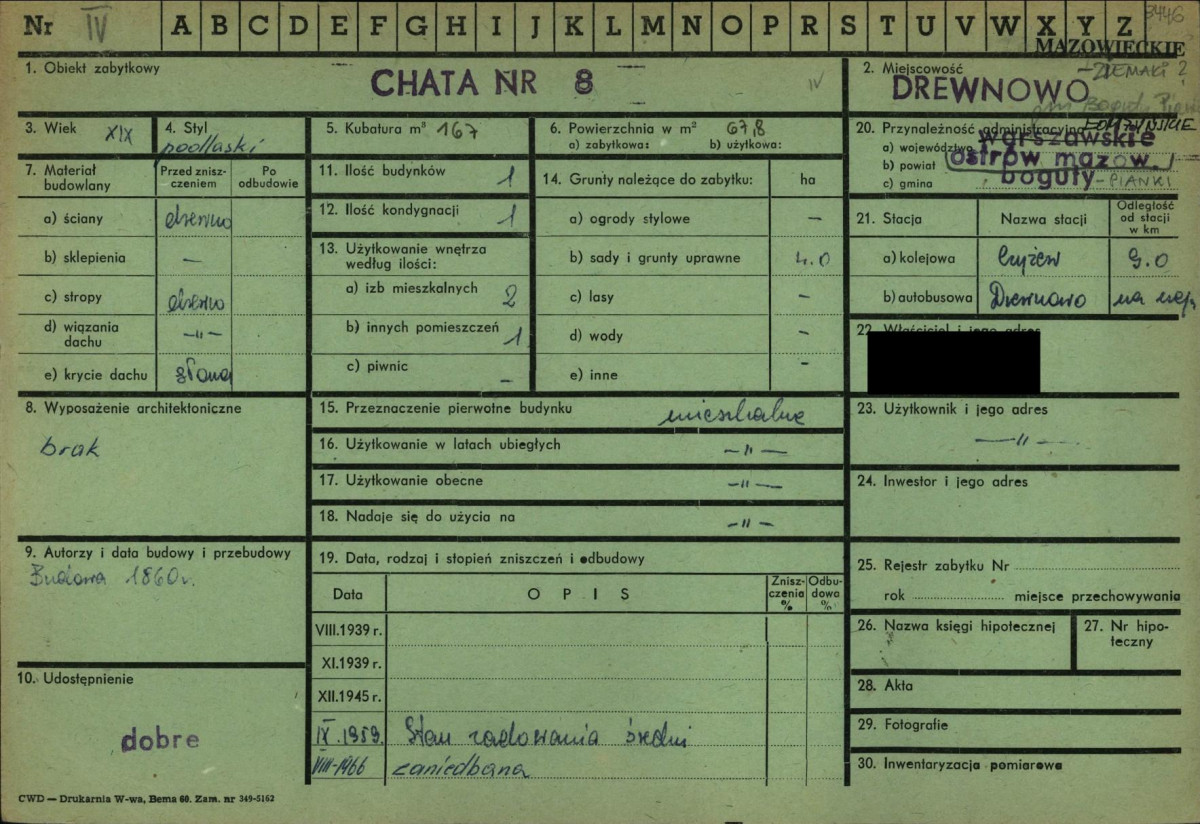 Nr IV A B C D E F G H I J K L M N O P R S T U V W X Y Z 3446
MAZOWIECKIE
1. Obiekt zabytkowy
CHATA NR 8
IV
2. Miejscowość
DREWNOWO
-ZIEMAKI ?
gm Boguty Pian
3. Wiek XIX
4. Styl podlaski
5. Kubatura m³ 167
6. Powierzchnia w m² 67,8
a) zabytkowa: b) użytkowa:
20. Przynależność administracyjna ŁOMŻYŃSKIE
a) województwo warszawskie
b) powiat ostrów mazow.
c) gmina boguty -PIANKI
7. Materiał budowlany
Przed zniszczeniem
Po odbudowie
a) ściany drewno
b) sklepienia —
c) stropy drewno
d) wiązania dachu —"—
e) krycie dachu słoma
11. Ilość budynków 1
12. Ilość kondygnacji 1
13. Użytkowanie wnętrza według ilości:
a) izb mieszkalnych 2
b) innych pomieszczeń 1
c) piwnic —
14. Grunty należące do zabytku: ha
a) ogrody stylowe —
b) sady i grunty uprawne 4.0
c) lasy —
d) wody —
e) inne -
21. Stacja
Nazwa stacji
Odległość od stacji w km
a) kolejowa Czyżew 9.0
b) autobusowa Drewnowo na miejs
22. Właściciel i jego adres
23. Użytkownik i jego adres
—"—
24. Inwestor i jego adres
25. Rejestr zabytku Nr
rok miejsce przechowywania
26. Nazwa księgi hipotecznej
27. Nr hipoteczny
28. Akta
29. Fotografie
30. Inwentaryzacja pomiarowa
8. Wyposażenie architektoniczne
brak
9. Autorzy i data budowy i przebudowy
Budowa 1860 r.
10. Udostępnienie
dobre
15. Przeznaczenie pierwotne budynku mieszkalne
16. Użytkowanie w latach ubiegłych —"—
17. Użytkowanie obecne —"—
18. Nadaje się do użycia na —"—
19. Data, rodzaj i stopień zniszczeń i odbudowy
Data
OPIS
Zniszczenia %
Odbudowa %
VIII.1939 r.
XI.1939 r.
XII.1945 r.
IX.1959. Stan zachowania średni
VIII-1966 zaniedbana
CWD — Drukarnia W-wa, Bema 60. Zam. nr 349-5162